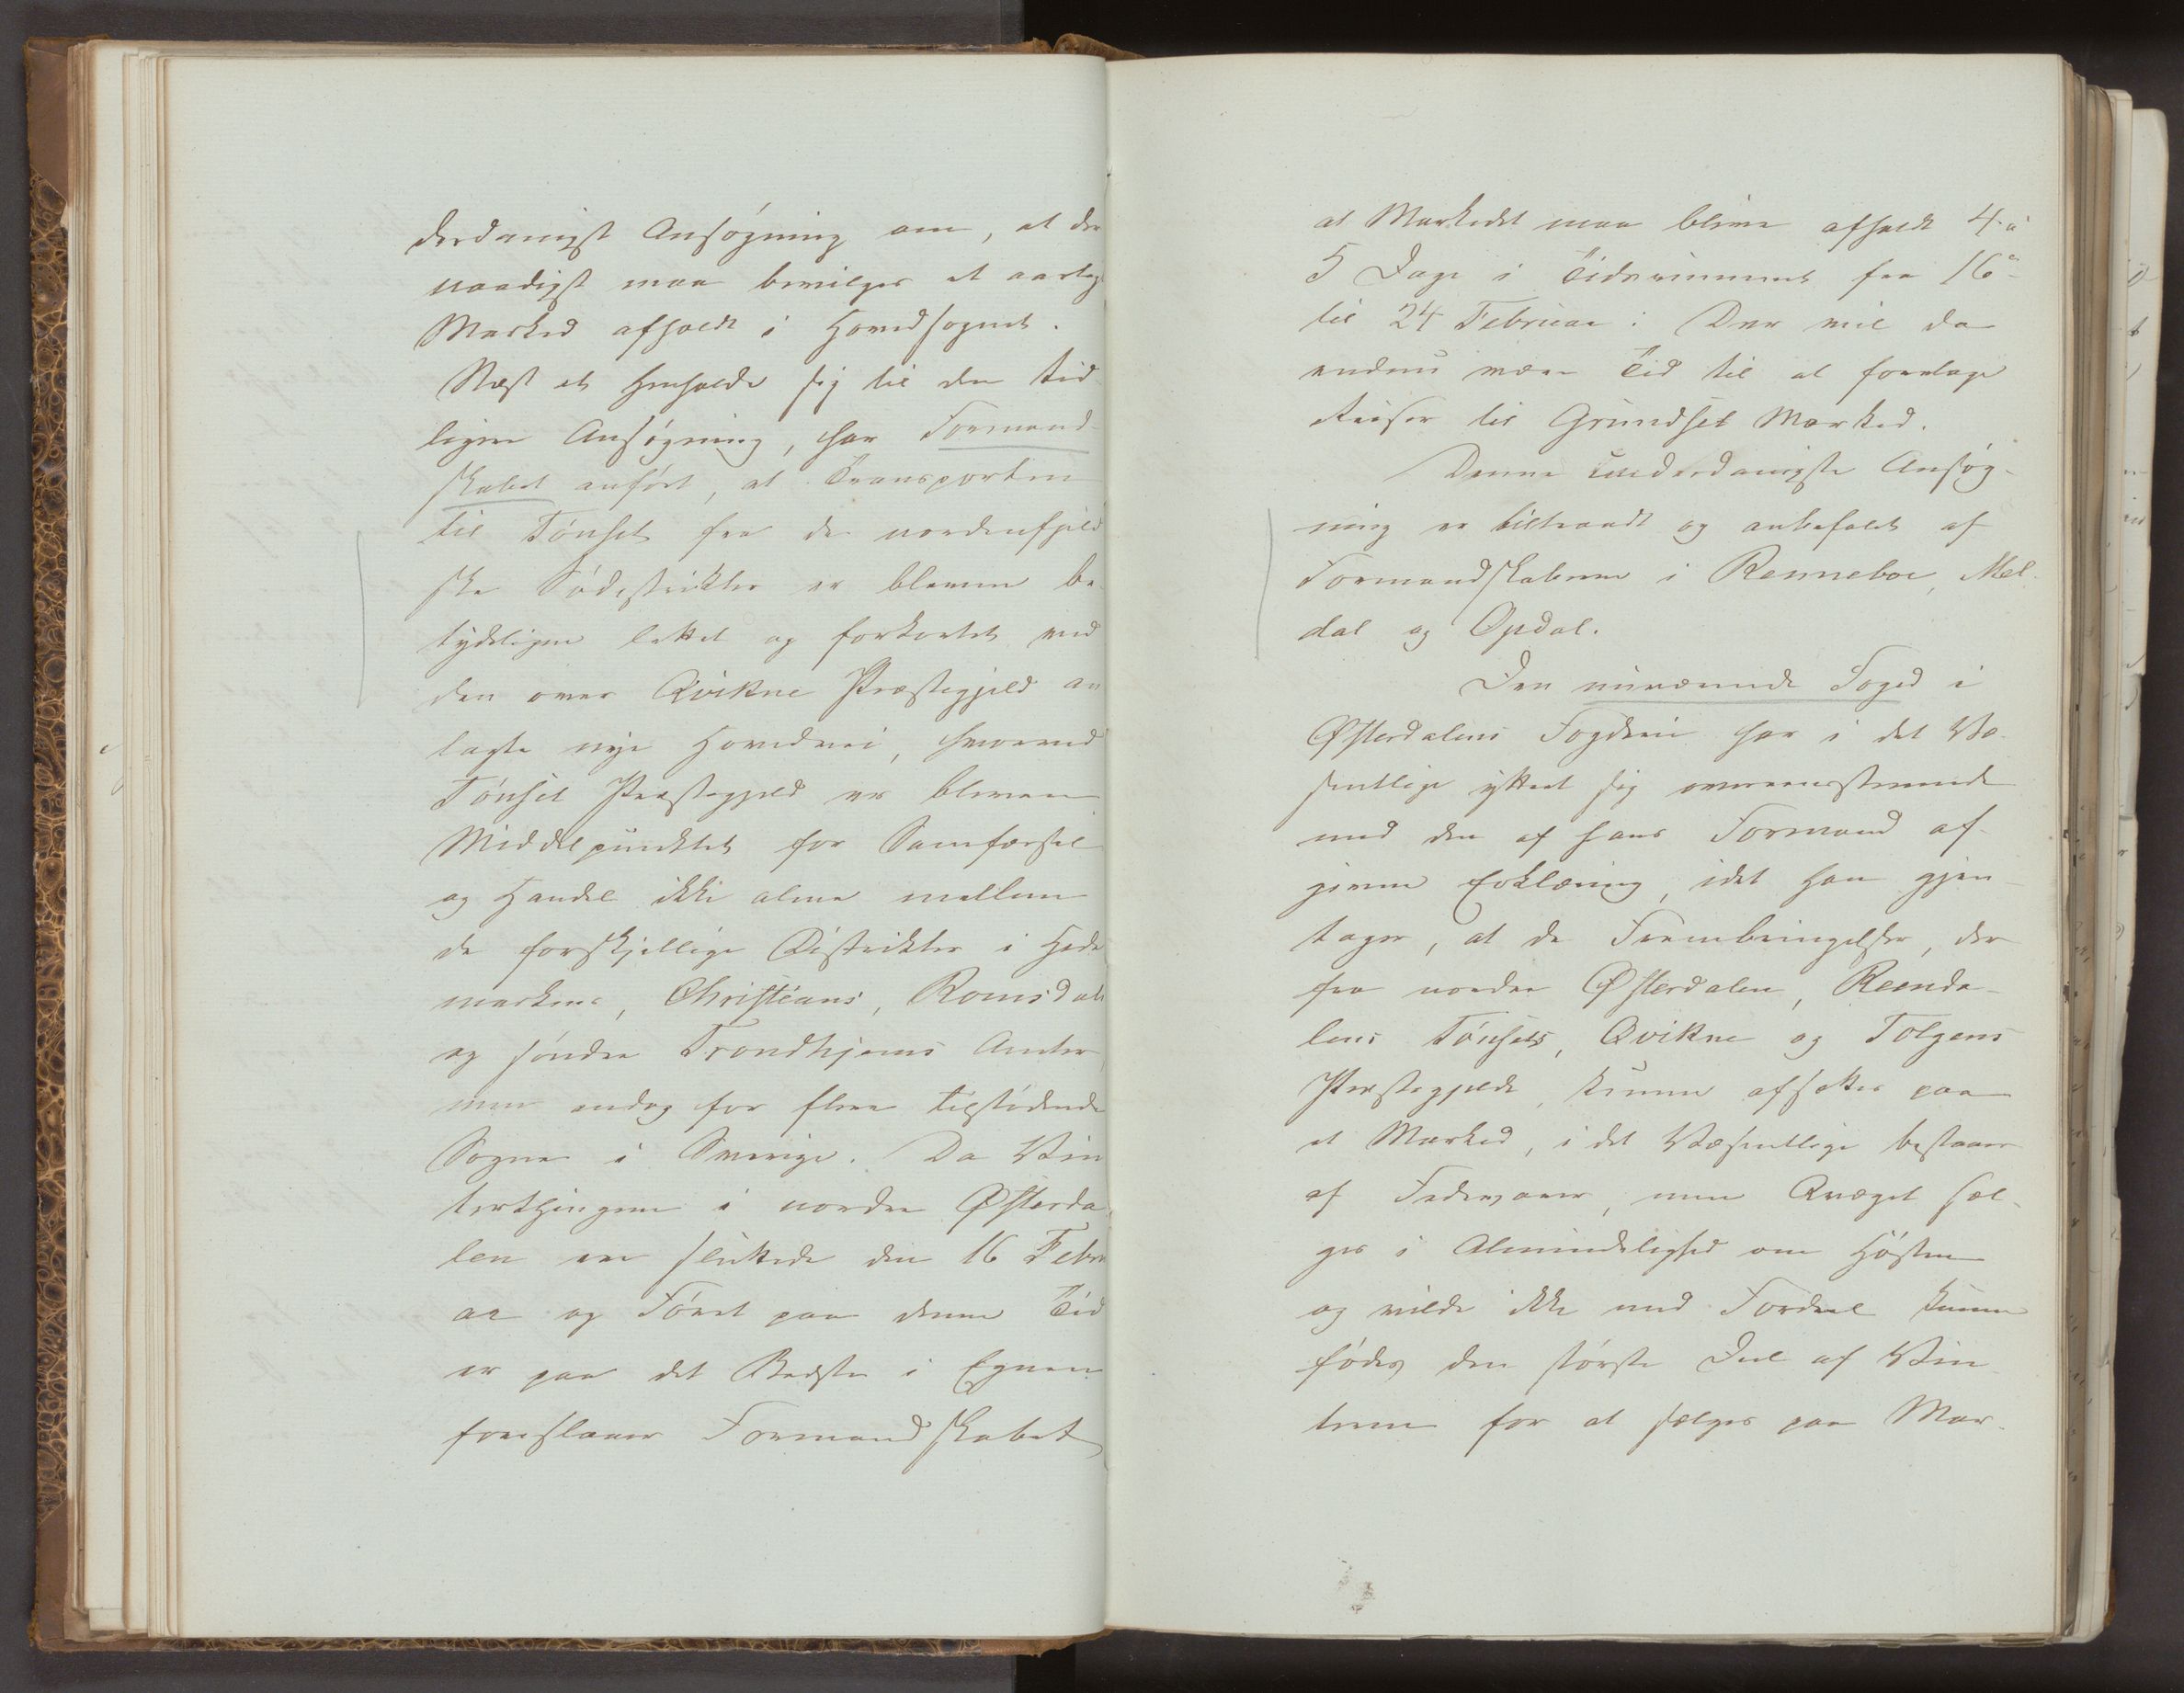 derdanigst Ansøgning om, at der
naadigst maa bevilges et aarligt
Marked afholdt i Hovedsognet.
Næst at henholde sig til den tid-
ligere Ansøgning, har Formand-
skabet anført, at Transporten
til Tønset fra de nordenfjeld
ske Sødistrikter er bleven be-
tydeligere lettet og forkortet ved
den over Qvikne Præstegjeld an
lagte nye Hovedvei, hvorved
Tønset Præstegjeld er bleven
Middelpunktet for Samfærsel
og Handel ikke alene mellem
de forskjellige Distrikter i Hede
markens, Christians, Romsdals
og søndre Trondhjems Amter,
men endog for flere tilstødende
Sogne i Sverige. Da Vin
terthingene i nordre Østerda-
len ere sluttede den 16 Febru
ar og Føret paa denne Tid
er paa det Bedste i Egnen
foreslaaer Formandskabet
at Markedet maa blive afholdt 4 à
5 Dage i Tidsrummet fra 16de
til 24 Februar. Der vil da
endnu være Tid til at foretage
Reiser til Grundset Marked.
Denne underdanigste Ansøg-
ning er tiltraadt og anbefalet af
Formandskaberne i Renneboe, Mel-
dal og Opdal.
Den nuværende Foged i
Østerdalens Fogderi har i det Væ-
sentlige yttret sig overeensstemmende
med den af hans Formand af-
givne Erklæring, idet han gjen-
tager, at de Frembringelser, der
fra nordre Østerdalen, Reenda-
lens Tønsets, Qvikne og Tolgens
Præstegjelde, kunne afsættes paa
et Marked, i det Væsentlige bestaaer
af Fedevarer, men Qvæget sæl-
ges i Almindelighed om Høsten
og vilde ikke med Fordeel kunne
fødes den største Deel af Vin
teren for at sælges paa Mar-